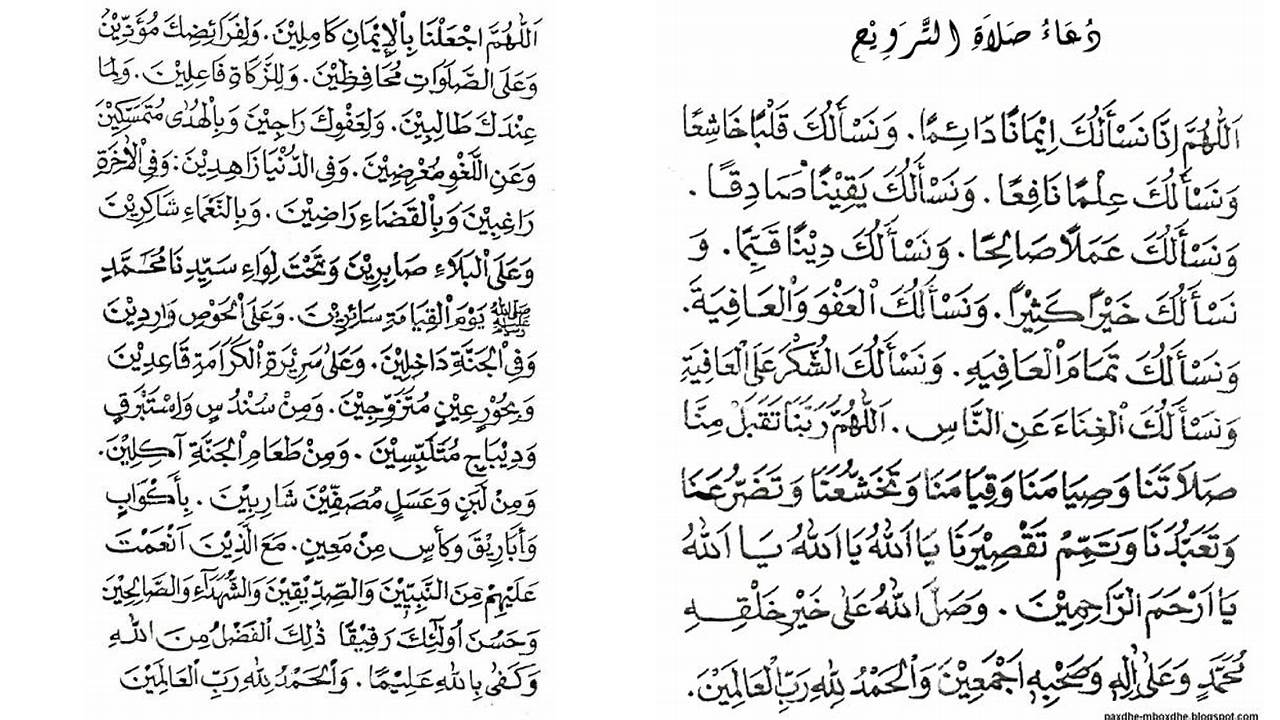 دُعَاءُ صَلَاةِ التَّرَوِيْحِ
اَللّٰهُمَّ اِنَّا نَسْأَلُكَ اِيْمَانًا دَائِمًا. وَنَسْأَلُكَ قَلْبًا خَاشِعًا
وَنَسْأَلُكَ عِلْمًا نَافِعًا. وَنَسْأَلُكَ يَقِيْنًا صَادِقًا.
وَنَسْأَلُكَ عَمَلًا صَالِحًا. وَنَسْأَلُكَ دِيْنًا قَيِّمًا. وَ
نَسْأَلُكَ خَيْرًا كَثِيْرًا. وَنَسْأَلُكَ الْعَفْوَ وَالْعَافِيَةَ.
وَنَسْأَلُكَ تَمَامَ الْعَافِيَةِ. وَنَسْأَلُكَ الشُّكْرَ عَلَى الْعَافِيَةِ
وَنَسْأَلُكَ الْغِنَاءَ عَنِ النَّاسِ. اَللّٰهُمَّ رَبَّنَا تَقَبَّلْ مِنَّا
صَلَاتَنَا وَصِيَامَنَا وَقِيَامَنَا وَتَخَشُّعَنَا وَتَضَرُّعَنَا
وَتَعَبُّدَنَا وَتَمِّمْ تَقْصِيْرَنَا يَا اَللهُ يَا اَللهُ يَا اَللهُ
يَا اَرْحَمَ الرَّاحِمِيْنَ. وَصَلَّ اللهُ عَلَى خَيْرِ خَلْقِهِ
مُحَمَّدٍ وَعَلَى اٰلِهِ وَصَحْبِهِ اَجْمَعِيْنَ وَالْحَمْدُ لِلّٰهِ رَبِّ الْعَالَمِيْنَ.
اَللّٰهُمَّ اجْعَلْنَا بِالْإِيْمَانِ كَامِلِيْنَ. وَلِفَرَائِضِكَ مُؤَدِّيْنَ
وَعَلَى الصَّلَوَاتِ مُحَافِظِيْنَ. وَلِلزَّكَاةِ فَاعِلِيْنَ. وَلِمَا
عِنْدَكَ طَالِبِيْنَ. وَلِعَفْوِكَ رَاجِيْنَ وَبِالْهُدٰى مُتَمَسِّكِيْنَ
وَعَنِ اللَّغْوِ مُعْرِضِيْنَ. وَفِى الدُّنْيَا زَاهِدِيْنَ: وَفِى الْاٰخِرَةِ
رَاغِبِيْنَ وَبِالْقَضَاءِ رَاضِيْنَ. وَبِالنَّعْمَاءِ شَاكِرِيْنَ
وَعَلَى الْبَلَاءِ صَابِرِيْنَ وَتَحْتَ لِوَاءِ سَيِّدِنَا مُحَمَّدٍ
ﷺ يَوْمَ الْقِيَامَةِ سَائِرِيْنَ. وَعَلَى الْحَوْضِ وَارِدِيْنَ
وَفِى الْجَنَّةِ دَاخِلِيْنَ. وَعَلَى سَرِيْرَةِ الْكَرَامَةِ قَاعِدِيْنَ
وَبِحُوْرِ عِيْنٍ مُتَزَوِّجِيْنَ. وَمِنْ سُنْدُسٍ وَاِسْتَبْرَقٍ
وَدِيْبَاجٍ مُتَلَبِّسِيْنَ. وَمِنْ طَعَامِ الْجَنَّةِ آكِلِيْنَ.
وَمِنْ لَبَنٍ وَعَسَلٍ مُصَفَّيْنَ شَارِبِيْنَ. بِأَكْوَابٍ
وَأَبَارِيْقَ وَكَأْسٍ مِنْ مَعِيْنٍ. مَعَ الَّذِيْنَ اَنْعَمْتَ
عَلَيْهِمْ مِنَ النَّبِيِّيْنَ وَالصِّدِّيْقِيْنَ وَالشُّهَدَاءِ وَالصَّالِحِيْنَ
وَحَسُنَ اُولٰئِكَ رَفِيْقًا ذٰلِكَ الْفَضْلُ مِنَ اللهِ
وَكَفٰى بِاللهِ عَلِيْمًا. وَالْحَمْدُ لِلّٰهِ رَبِّ الْعَالَمِيْنَ
paxdhe-mboxdhe.blogspot.com